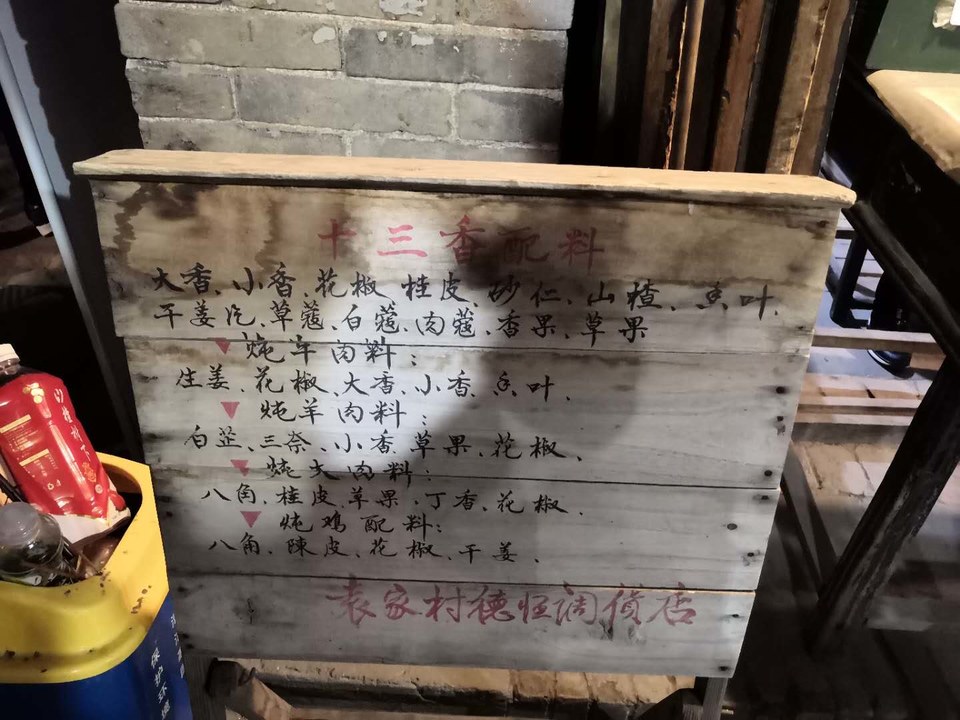 十三香配料
大香、小香、花椒 桂皮、砂仁、山楂、香叶、
干姜汔、草蔻、白蔻、肉蔻、香果、草果
炖牛肉料：
生姜、花椒、大香、小香、香叶、
炖羊肉料：
白芷、三奈、小香、草果、花椒、
炖大肉料：
八角、桂皮、草果、丁香、花椒、
炖鸡配料：
八角、陳皮、花椒、干姜、
袁家村德恒调货店
保护环